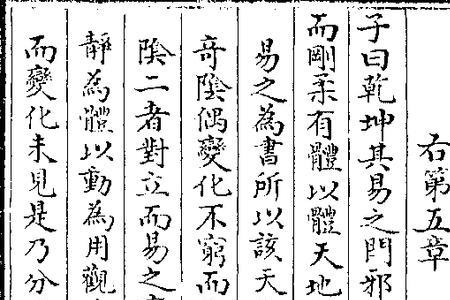 右第五章
子曰乾坤其易之門邪
而剛柔有體以體天地
易之為書所以該天
奇陰偶變化不窮而
陰二者對立而易之
靜為體以動為用觀
而變化未見是乃分